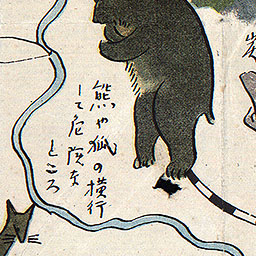 熊や狐の横行
して危険な
ところ